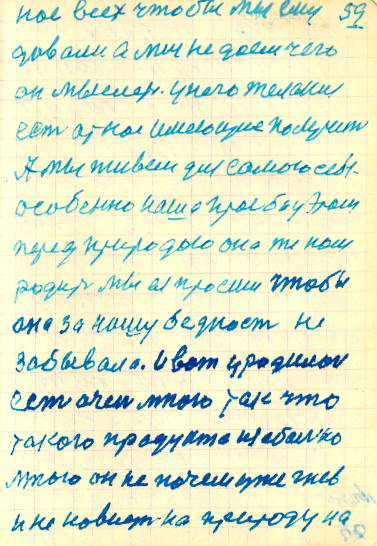 нас всех чтобы мы ему 59
довали а мы не даем чего
он мыслер. у него желания
ест от нас имеющие получит
А мы живем для самого себя.
особенно наша просьба у этом
перед природою она же нам
родит мы ея просим чтобы
она за нашу бедност не
забывала. И вот уродилос
ест очен много так что
такого продукта яблоко
много он не почем уже гнев
и не новист на природу на